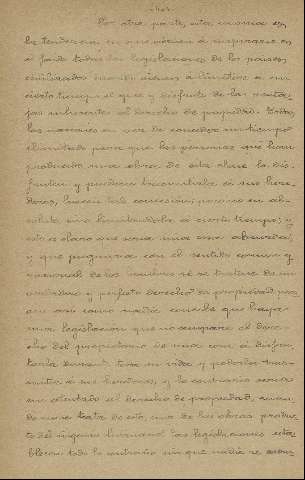 Por otra parte, esta misma es
la tendencia en que vienen á inspirarse en
el fondo todas las legislaciones de los países
civilizados cuando vienen á limitar á un
cierto tiempo el goce y disfrute de las venta-
jas inherentes al derecho de propiedad. Todas
las naciones en vez de conceder un tiempo
ilimitado para que las personas que han
producido una obra de esta clase la dis-
fruten y puedan trasmitirla á sus here-
deros, hacen tal concesión, pero no en ab-
soluto sino limitándola á cierto tiempo; y
esto es claro que sería una cosa absurda,
y que pugnaría con el sentido común y
racional de los hombres si se tratase de un
verdadero y perfecto derecho de propiedad, pues
en ese caso nadie concibe que haya
una legislación que no ampare el dere-
cho del propietario de una cosa á disfru-
tarla durante toda su vida y poderla tras-
mitir á sus herederos, y lo contrario sería
un atentado al derecho de propiedad, cuan-
do se trata de esto, una de las obras produc-
to del ingenio humano las legislaciones esta-
blecen todo lo contrario sin que nadie se